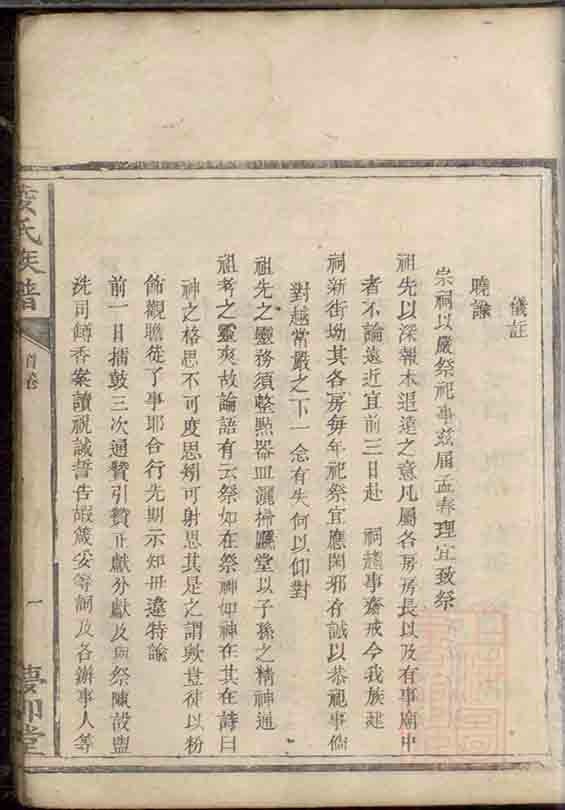 儀註
曉諭
崇祠以嚴祭祀事玆届孟春理宜致祭
祖先以深報本追遠之意凡屬各房房長以及有事廟中
者不論遠近宜前三日赴 祠趨事齋戒今我族建
祠新街坳其各房每年祀祭宜應閑邪存誠以恭祀事倘
對越常嚴之下一念有失何以仰對
祖先之靈務須整㸃器皿灑掃廳堂以子孫之精神通
祖考之靈爽故論語有云祭如在祭神如神在其在詩曰
神之格思不可度思矧可射思其是之謂歟豈徒以粉
飾觀瞻徒了事耶合行先期示知毋違特諭
前一日擂鼓三次通贊引贊正獻分獻及與祭陳設盥
洗司罇香案讀祝誡誓告嘏箴妥等詞及各辦事人等
氏族譜
首卷
一
夢卯堂